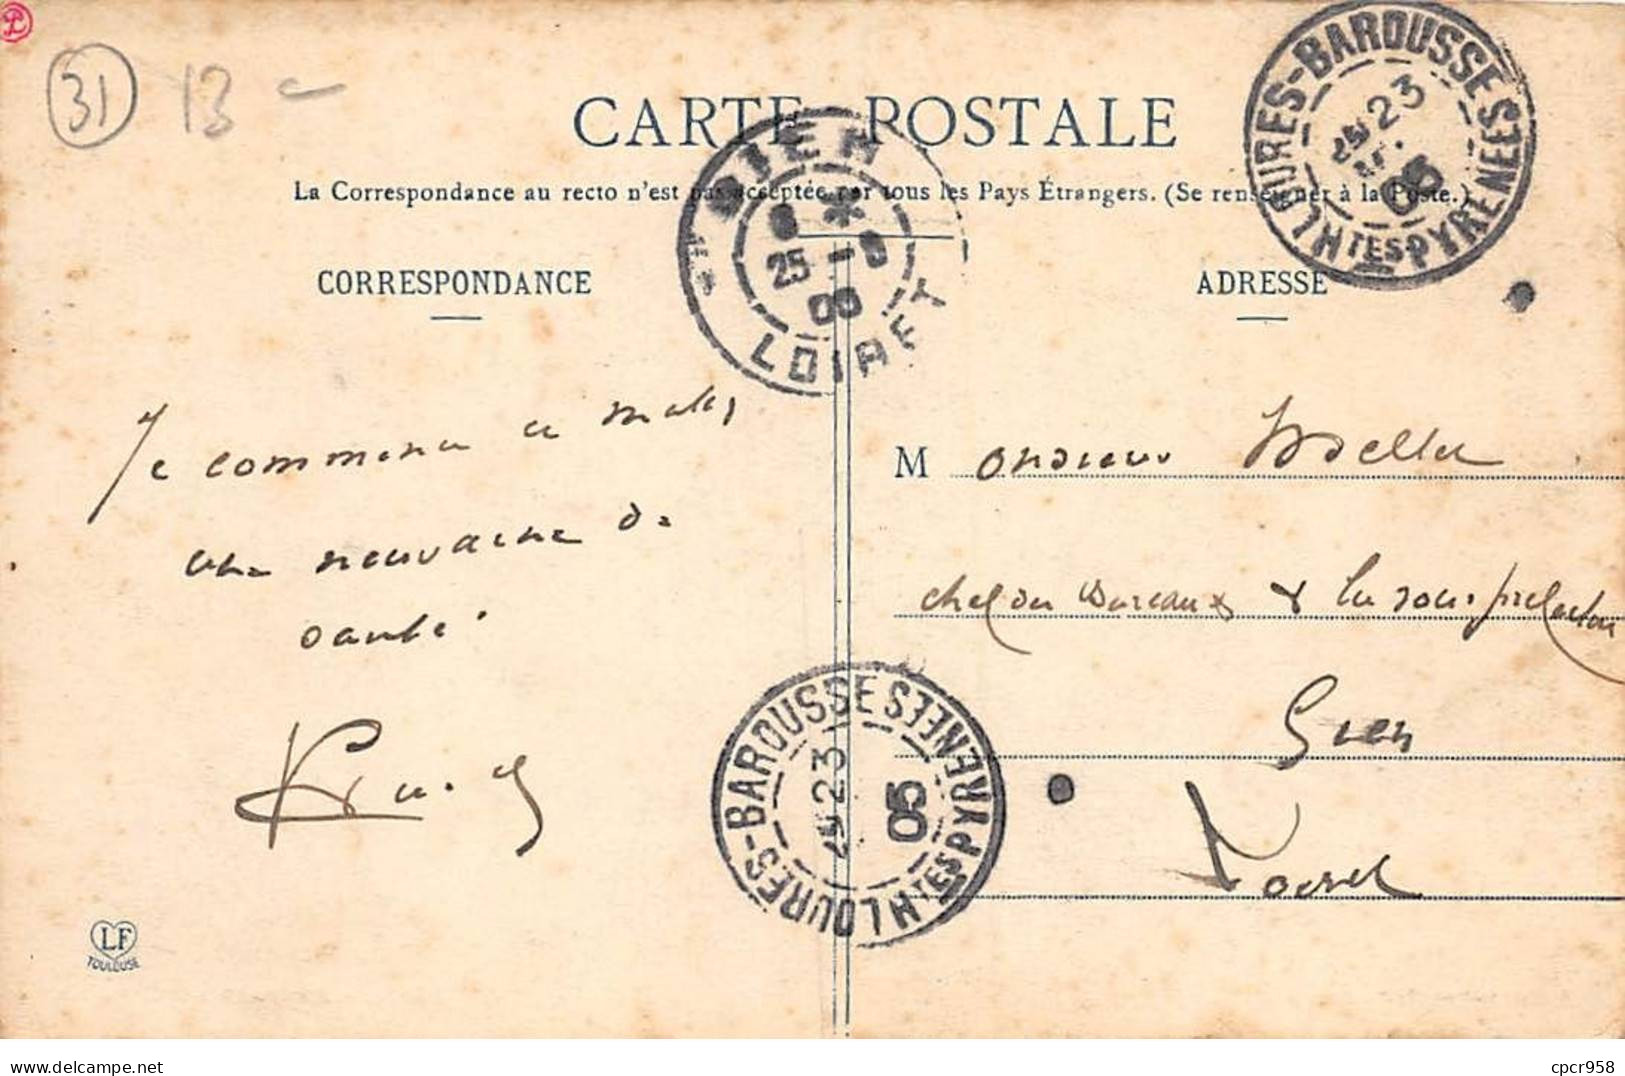 31 13
CARTE POSTALE
La Correspondance au recto n'est pas acceptée par tous les Pays Étrangers. (Se renseigner à la Poste.)
LOURES-BAROUSSE
HTES PYRENEES
23
05
GIEN
25
LOIRET
CORRESPONDANCE
ADRESSE
Je commence ce matin
une neuvaine de
santé.
Monsieur
chef des Bureaux de la sous-préfecture
Gien
Loiret
LOURES-BAROUSSE
HTES PYRENEES
23
05
LF
TOULOUSE
cpcr958